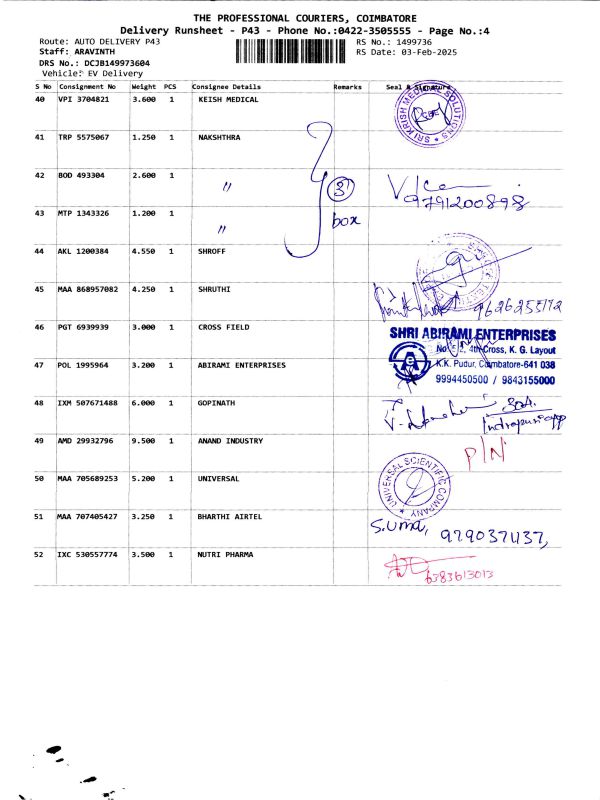 THE PROFESSIONAL COURIERS, COIMBATORE
Delivery Runsheet - P43 - Phone No.:0422-3505555 - Page No.:4
Route: AUTO DELIVERY P43 RS No.: 1499736
Staff: ARAVINTH RS Date: 03-Feb-2025
DRS No.: DCJB149973604
Vehicle: EV Delivery
S No Consignment No Weight PCS Consignee Details Remarks Seal & Signature
40 VPI 3704821 3.600 1 KEISH MEDICAL
SRI KRISH MEDICAL SOLUTIONS
41 TRP 5575067 1.250 1 NAKSHTHRA
42 BOD 493304 2.600 1 " 3
9791200898
43 MTP 1343326 1.200 1 " box
44 AKL 1200384 4.550 1 SHROFF
45 MAA 868957082 4.250 1 SHRUTHI
9626255172
46 PGT 6939939 3.000 1 CROSS FIELD
SHRI ABIRAMI ENTERPRISES
4th Cross, K. G. Layout
47 POL 1995964 3.200 1 ABIRAMI ENTERPRISES
K.K. Pudur, Coimbatore-641 038
9994450500 / 9843155000
48 IXM 507671488 6.000 1 GOPINATH
49 AMD 29932796 9.500 1 ANAND INDUSTRY P/N
50 MAA 705689253 5.200 1 UNIVERSAL
UNIVERSAL SCIENTIFIC COMPANY
51 MAA 707405427 3.250 1 BHARTHI AIRTEL
S.Uma,
52 IXC 530557774 3.500 1 NUTRI PHARMA
6383613013